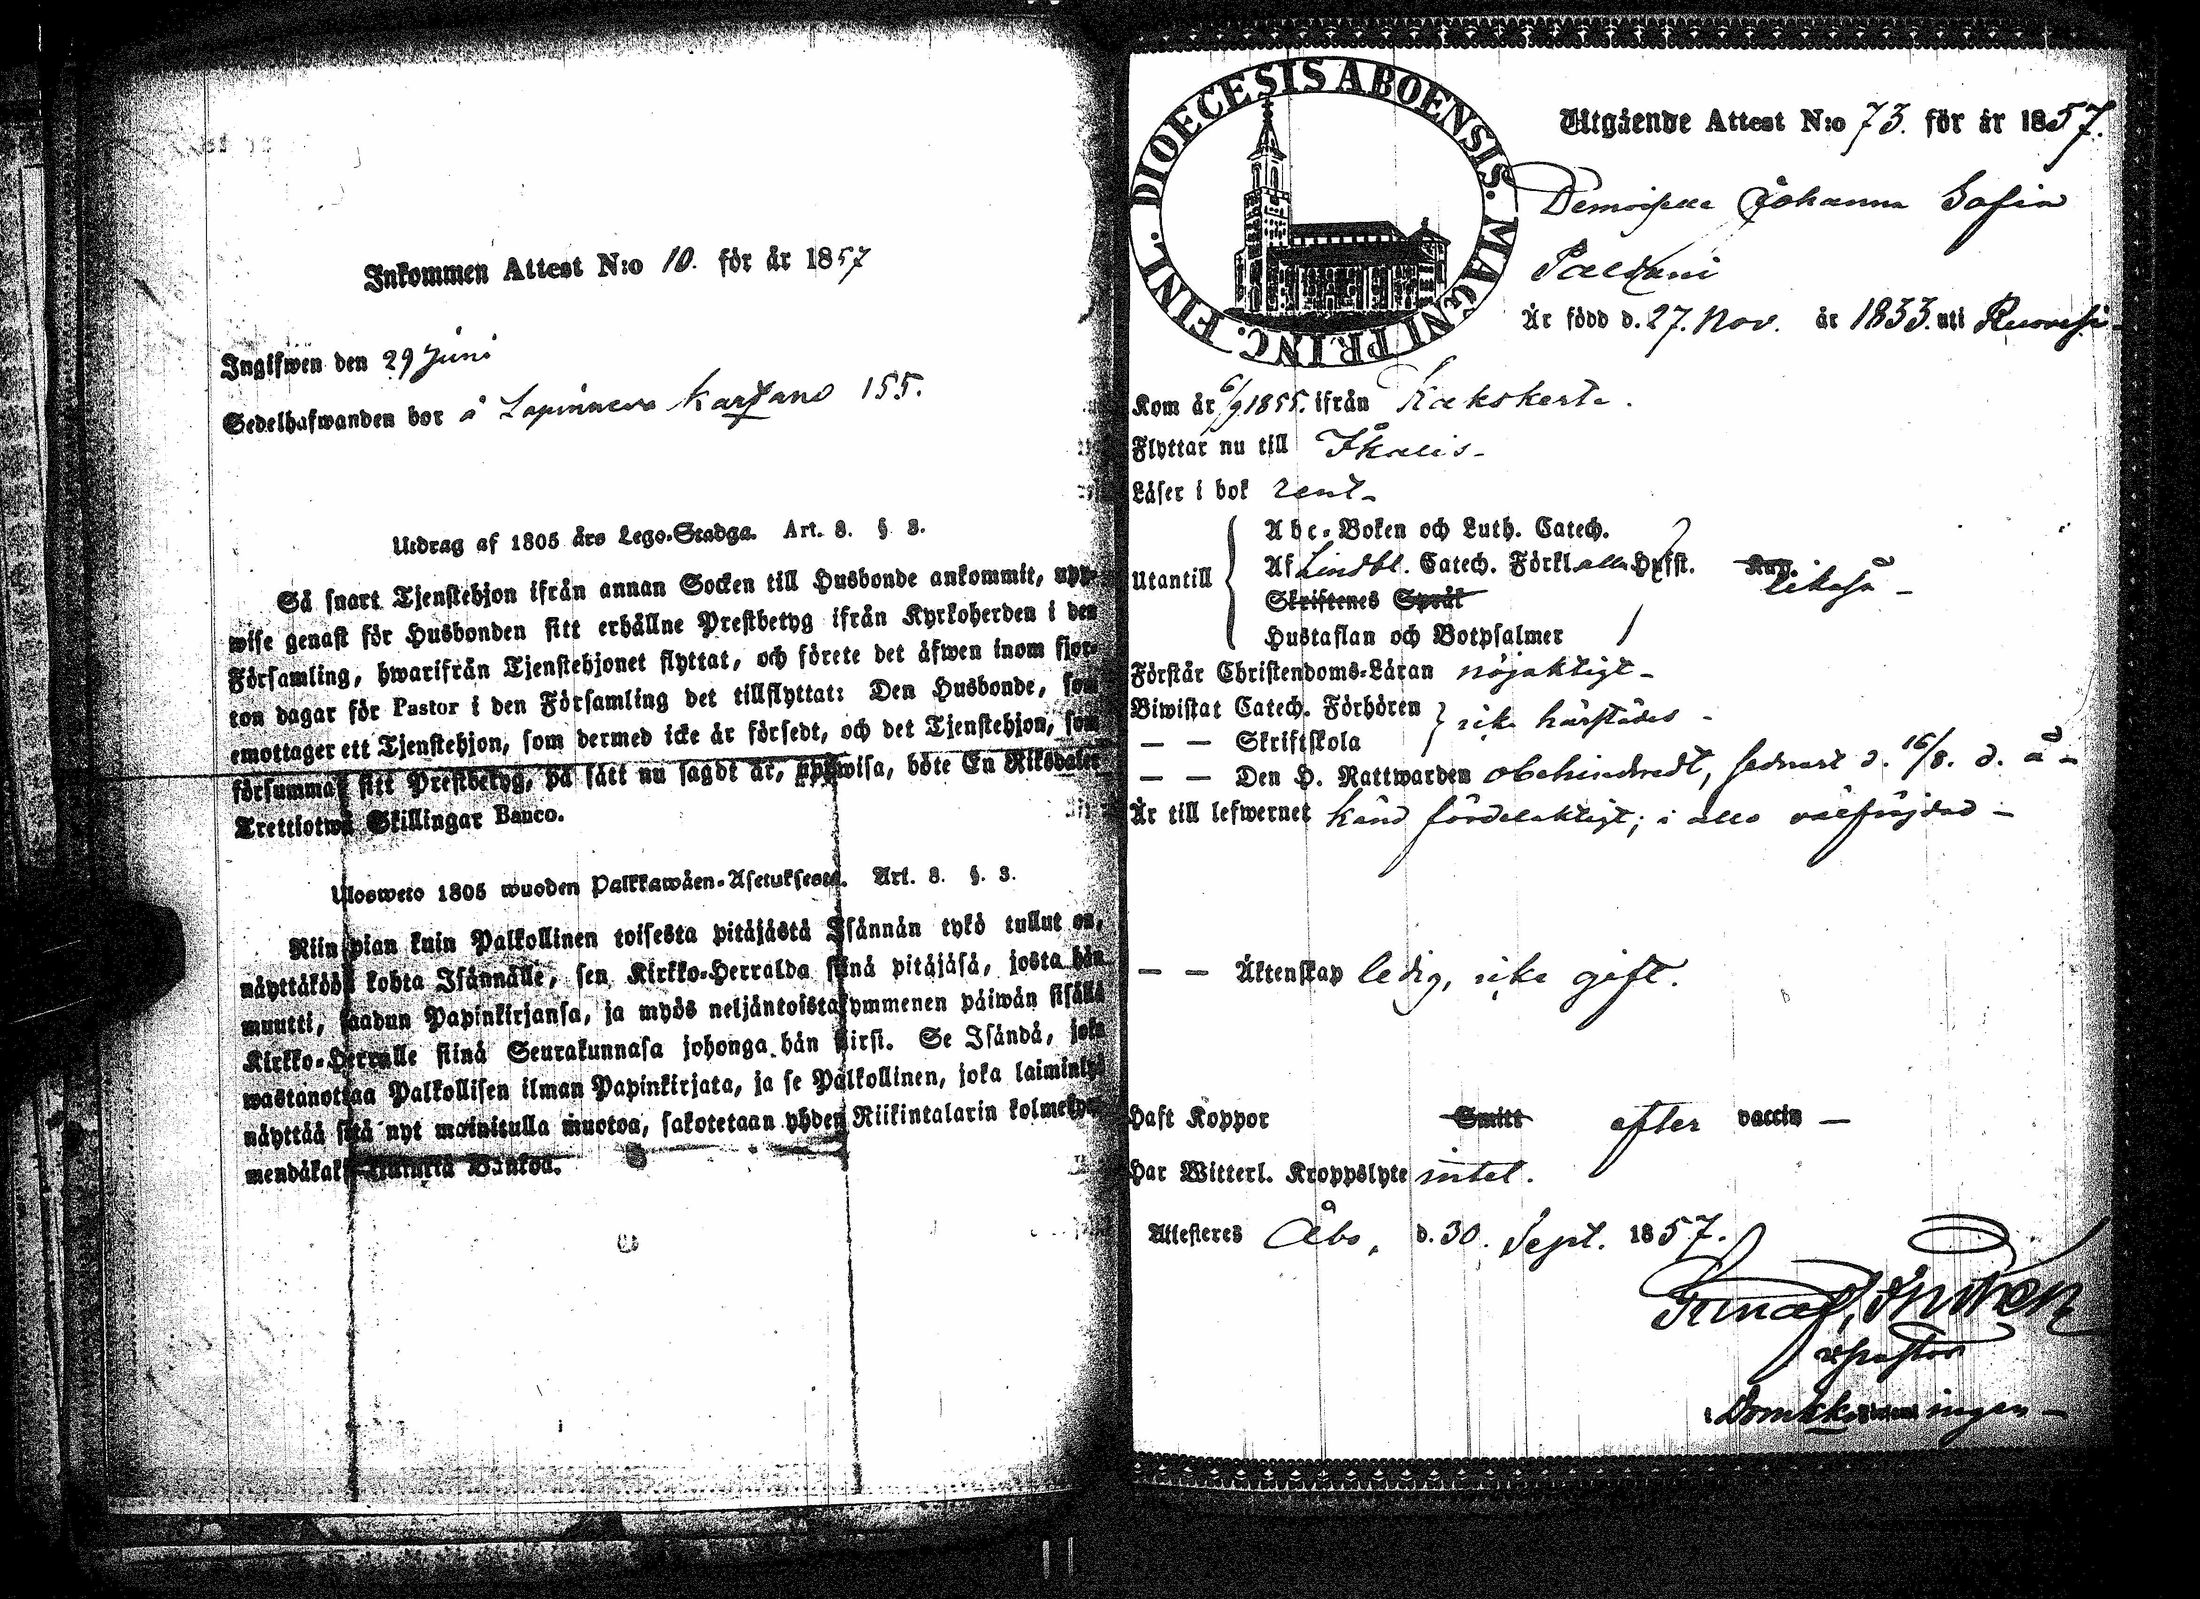 Inkommen Attest N:o 10. för år 1857
Ingifwen den 29 Juni
Sedelhafwanden bor å Lapinneva 155.
Utdrag af 1805 års Lego-Stadga. Art. 3. § 3.
Så snart Tjenstehjon ifrån annan Socken till Husbonde ankommit, upp-
wise genast för Husbonden sitt erhållne Prestbetyg ifrån Kyrkoherden i den
Församling, hwarifrån Tjenstehjonet flyttat, och förete det åfwen inom fjor-
ton dagar för Pastor i den Församling det tillflyttat: Den Husbonde, som
emottager ett Tjenstehjon, som dermed icke är försedt, och det Tjenstehjon, som
försummar sitt Prestbetyg, på sätt nu sagdt är, uppwisa, böte En Riksdaler
Trettiotwå Skillingar Banco.
Ulosweto 1805 wuoden Palkkawäen-Asetuksesta. Art. 3. §. 3.
Niin pian kuin Palkollinen toisesta pitäjästä Isännän tykö tullut on,
näyttäköön kohta Isännälle, sen Kirkko-Herralda siinä pitäjäsä, josta hän
muutti, saadun Papinkirjansa, ja myös neljäntoistakymmenen päiwän sisällä
Kirkko-Herralle siinä Seurakunnasa johonga hän siirsi. Se Isändä, joka
wastanottaa Palkollisen ilman Papinkirjata, ja se Palkollinen, joka laiminlyö
näyttää sitä nyt mainitulla muotoa, sakotetaan yhden Riikintalarin kolmekym-
mendäkaksi Bankoa.
DIOECESIS ABOENSIS. MAGNI PRINC. FINL.
Utgående Attest N:o 73. för år 1857.
Demoiselle Johanna Sofia
Paldani
Är född d. 27. Nov. år 1833. uti Ruovesi
Kom år 6/9 1855. ifrån Kakskerta.
Flyttar nu till Ikalis-
Läser i bok rent-
Utantill
Abc-Boken och Luth. Catech.
Af Lindbl. Catech. Förkl. alla Hufst. likaså -
Skriftenes Språk
Hustaflan och Botpsalmer
Förstår Christendoms-Läran nöjaktigt -
Biwistat Catech. Förhören
icke härstädes -
— — Skriftskola
— — Den H. Nattwarden obehindradt, sednast d. 16/8. d. å -
Är till lefwernet känd fördelaktigt; i allo välfrejdad -
— — Äktenskap ledig, icke gift.
Haft Koppor Smitt efter vaccin —
Har Witterl. Kroppslyte intet.
Attesteras Åbo, d. 30. Sept. 1857.